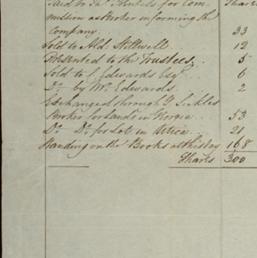 Paid to Js. Shields for Com Shares
mission as Broker in forming the
Company 33
Sold to Ald Stillwell 12
Presented to the Trustees 5
Sold to J Edwards Esqr. 6
Do. by Wm. Edwards 2
Exchanged through J
Broker for Lands in Georgia 53
Do. Do. for Lot in Utica 21
Standing on the Books at this day 168
Shares 300